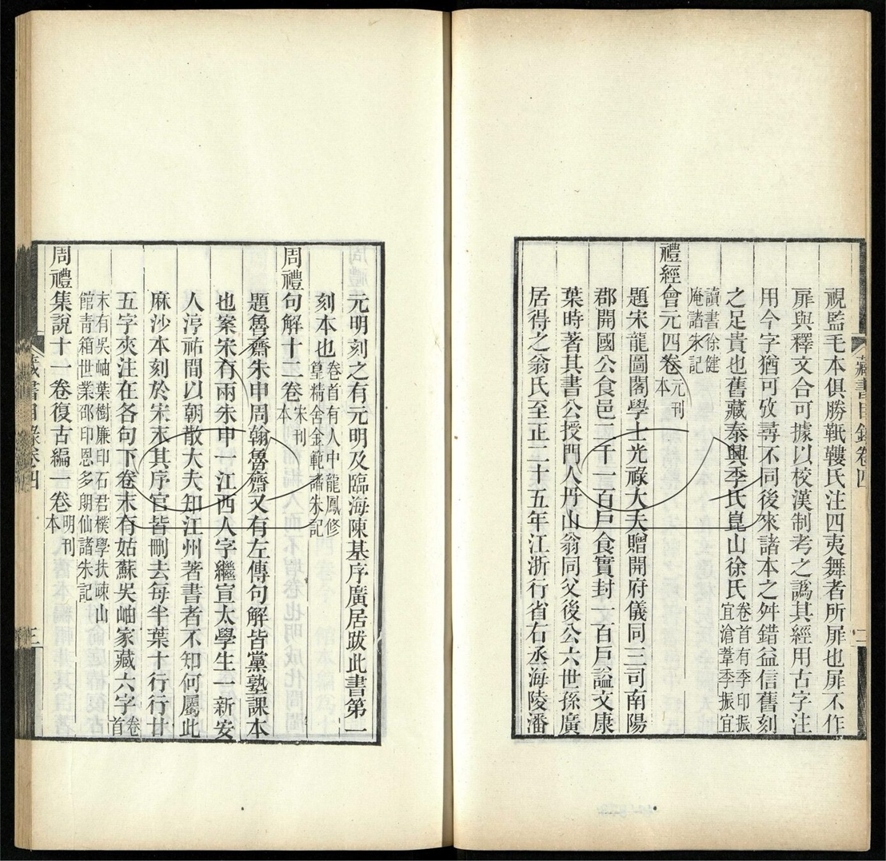 視監毛本俱勝鞮鞻氏注四夷舞者所屝也屝不作
屝與釋文合可據以校漢制考之譌其經用古字注
用今字猶可攷尋不同後來諸本之舛錯益信舊刻
之足貴也舊藏泰興季氏崑山徐氏卷首有季印振
宜滄葦季振宜
讀書徐健
庵諸朱記
禮經會元四卷元刊
本
題宋龍圖閣學士光祿大夫贈開府儀同三司南陽
郡開國公食邑二千一百戶食實封一百戶謚文康
葉時著其書公授門人丹山翁同父後公六世孫廣
居得之翁氏至正二十五年江浙行省右丞海陵潘
藏書目錄卷四
二
元明刻之有元明及臨海陳基序廣居跋此書第一
刻本也卷首有人中龍鳳修
篁精舍金範諸朱記
周禮句解十二卷宋刊
本
題魯齋朱申周翰魯齋又有左傳句解皆黨塾課本
也案宋有兩朱申一江西人字繼宣太學生一新安
人淳祐間以朝散大夫知江州著書者不知何屬此
麻沙本刻於宋末其序官皆刪去每半葉十行行廿
五字夾注在各句下卷末有姑蘇吳岫家藏六字卷
首
末有吳岫葉樹廉印石君樸學扶疎山
館青箱世業邵印恩多朗仙諸朱記
周禮集說十一卷復古編一卷明刊
本
藏書目錄卷四
三